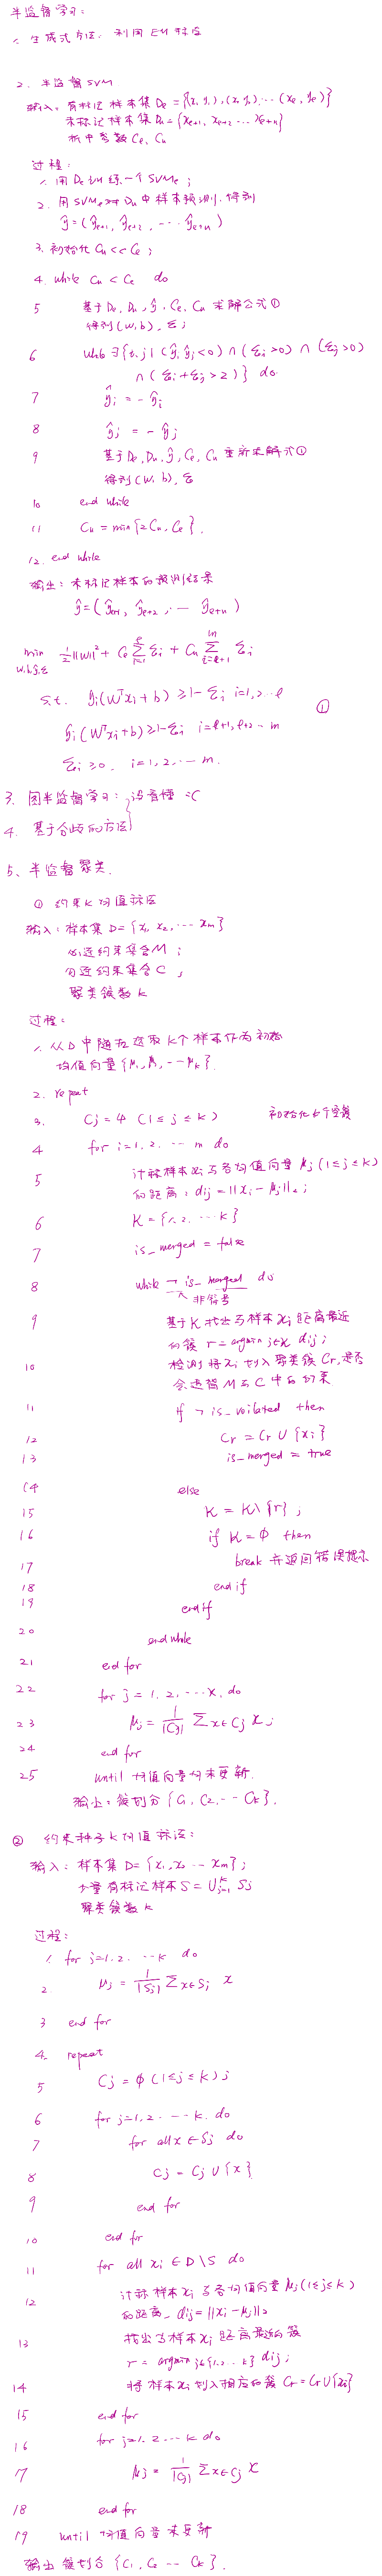 半监督学习:
1. 生成式方法: 利用EM算法
2. 半监督SVM
输入: 有标记样本集Dₑ={(x₁,y₁),(x₂,y₂),…(xₑ,yₑ)}
未标记样本集Dᵤ={xₑ₊₁,xₑ₊₂…xₑ₊ᵤ}
折中参数Cₑ,Cᵤ
过程:
1. 用Dₑ训练一个SVMₑ;
2. 用SVMₑ对Dᵤ中样本预测,得到
ŷ=(ŷₑ₊₁,ŷₑ₊₂,…ŷₑ₊ᵤ)
3. 初始化Cᵤ<<Cₑ;
4. while Cᵤ<Cₑ do
5 基于Dₑ,Dᵤ,ŷ,Cₑ,Cᵤ求解公式①
得到(w,b),ξ;
6 while ∃{i,j|(ŷᵢŷⱼ<0)∩(ξᵢ>0)∩(ξⱼ>0)
∩(ξᵢ+ξⱼ>2)} do
7 ŷᵢ=-ŷᵢ
8 ŷⱼ=-ŷⱼ
9 基于Dₑ,Dᵤ,ŷ,Cₑ,Cᵤ重新求解式①
得到(w,b),ξ
10 end while
11 Cᵤ=min{2Cᵤ,Cₑ}.
12. end while
输出: 未标记样本的预测结果
ŷ=(ŷₑ₊₁,ŷₑ₊₂,…ŷₑ₊ᵤ)
min w,b,ŷ,ξ ½||w||²+Cₑ∑ᵢ₌₁ˡ ξᵢ+Cᵤ∑ᵢ₌ₗ₊₁ᵐ ξᵢ
s.t. yᵢ(wᵀxᵢ+b)≥1-ξᵢ i=1,2…l
①
ŷᵢ(wᵀxᵢ+b)≥1-ξᵢ i=l+1,l+2…m
ξᵢ≥0. i=1,2…m.
3. 图半监督学习: 没看懂 :(
4. 基于分歧的方法
5、半监督聚类.
① 约束k均值算法
输入: 样本集D={x₁,x₂,…xₘ}
必连约束集合M;
勿连约束集合C;
聚类簇数k
过程:
1. 从D中随机选取k个样本作为初始
均值向量{μ₁,μ₂,…μₖ}.
2. repeat
3. Cⱼ=φ (1≤j≤k) 初始化k个空簇
4 for i=1,2.…m do
5 计算样本xᵢ与各均值向量μⱼ(1≤j≤k)
的距离: dᵢⱼ=||xᵢ-μⱼ||₂;
6 K={1,2.…k}
7 is_merged=false
8 while ¬is_merged do
非符号
9 基于K找出与样本xᵢ距离最近
的簇 r=argmin j∈K dᵢⱼ;
10 检测将xᵢ划入聚类簇Cr,是否
会违背M与C中的约束
11 if ¬is_voilated then
12 Cr=Cr∪{xᵢ}
13 is_merged=true
14 else
15 K=K\{r};
16 if K=φ then
17 break 并返回错误提示
18 end if
19 end if
20 end while
21 end for
22 for j=1,2,…k,do
23 μⱼ=1/|Cⱼ| ∑x∈Cⱼ x;
24 end for
25 until 均值向量均未更新.
输出: 簇划分{C₁,C₂,…Cₖ}.
② 约束种子k均值算法:
输入: 样本集D={x₁,x₂…xₘ};
少量有标记样本S=∪ⱼ₌₁ᵏ Sⱼ
聚类簇数k
过程:
1. for j=1,2.…k do
2. μⱼ=1/|Sⱼ| ∑x∈Sⱼ x
3 end for
4. repeat
5 Cⱼ=φ(1≤j≤k);
6 for j=1,2.…k. do
7 for all x∈Sⱼ do
8 Cⱼ=Cⱼ∪{x}
9 end for
10 end for
11 for all xᵢ∈D\S do
12 计算样本xᵢ与各均值向量μⱼ(1≤j≤k)
的距离, dᵢⱼ=||xᵢ-μⱼ||₂
13 找出与样本xᵢ距离最近的簇
r=argmin j∈{1,2..k} dᵢⱼ;
14 将样本xᵢ划入相应的簇Cr=Cr∪{xᵢ}
15 end for
16 for j=1,2…k do
17 μⱼ=1/|Cⱼ| ∑x∈Cⱼ x
18 end for
19 until 均值向量未更新
输出 簇划分{C₁,C₂…Cₖ}.